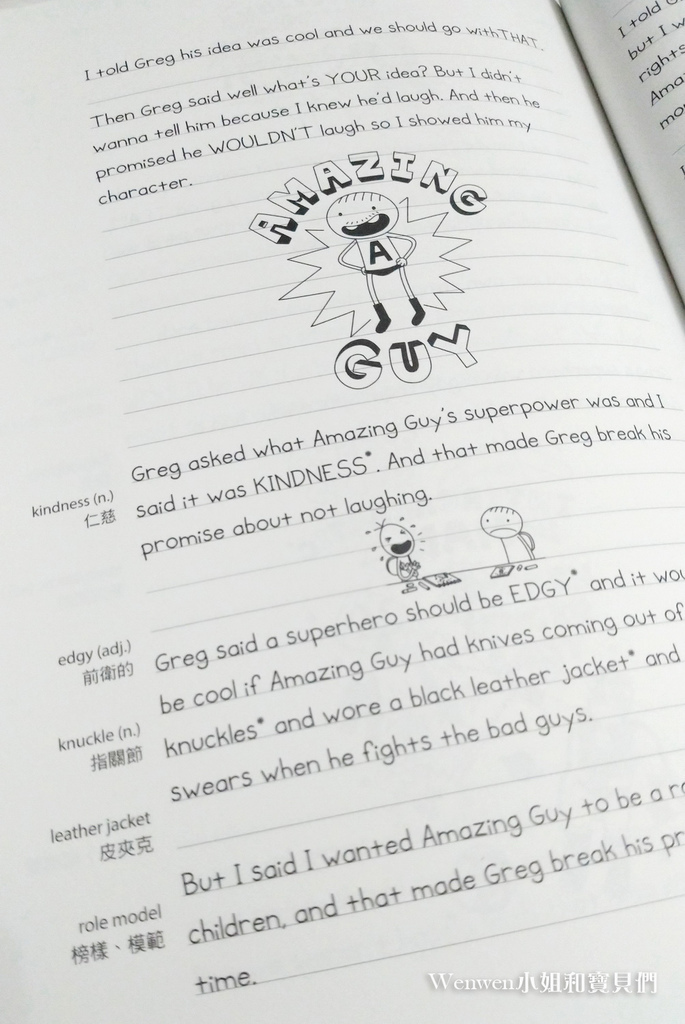 I told Greg his idea was cool and we should go with THAT.
Then Greg said well what's YOUR idea? But I didn't
wanna tell him because I knew he'd laugh. And then he
promised he WOULDN'T laugh so I showed him my
character.
AMAZING
A
GUY
Greg asked what Amazing Guy's superpower was and I
said it was KINDNESS*. And that made Greg break his
promise about not laughing.
kindness (n.)
仁慈
Greg said a superhero should be EDGY* and it
be cool if Amazing Guy had knives coming out of
knuckles* and wore a black leather jacket* and
swears when he fights the bad guys.
edgy (adj.)
前衛的
knuckle (n.)
指關節
leather jacket
皮夾克
But I said I wanted Amazing Guy to be a
children, and that made Greg break his
time.
role model
榜樣、模範
I told
but I
rights
Wenwen小姐和寶貝們